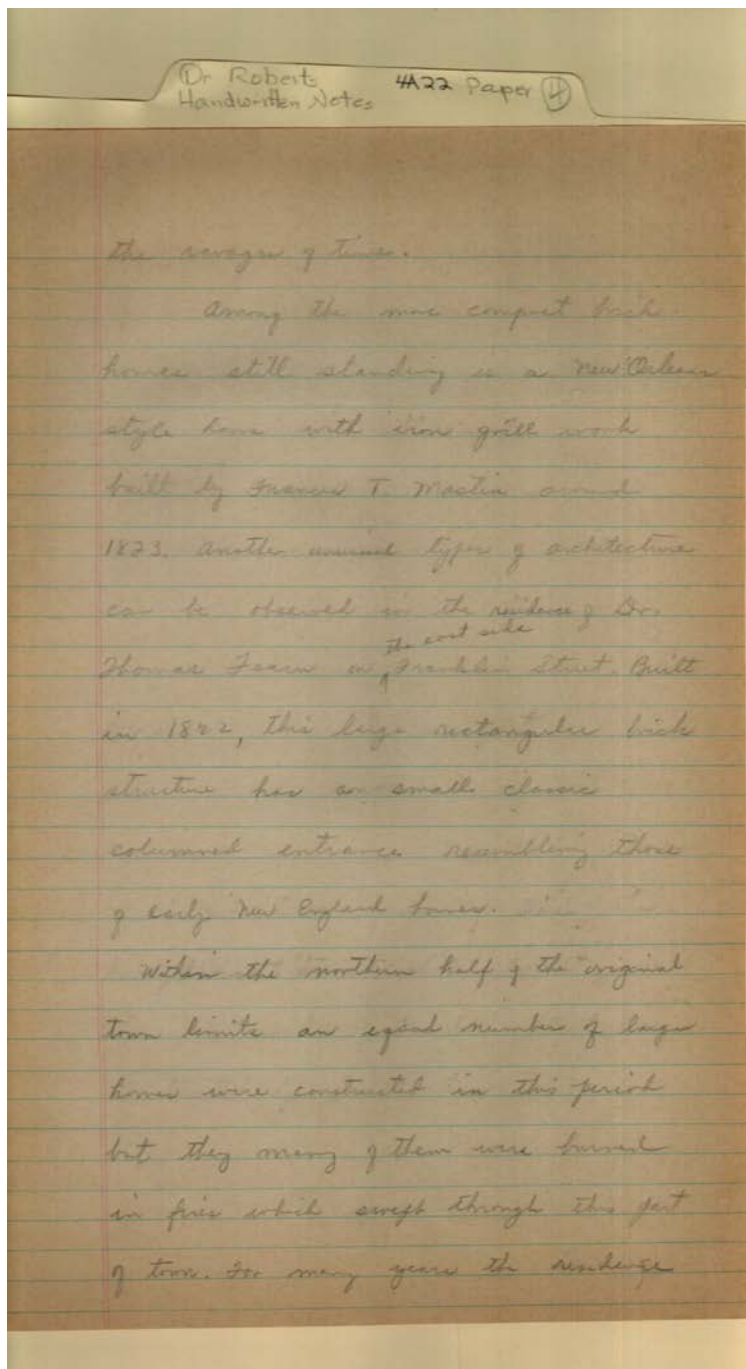 Dr Roberts 4A22 Paper 4
Handwritten Notes
the ravages of time.
Among the more compact brick
homes still standing is a New Orleans
style home with iron grill work
built by Frances T. Mastin around
1823. Another unusual type of architecture
can be observed in the residence of Dr.
the east side
Thomas Fearn on Franklin Street. Built
in 1822, this large rectangular brick
structure has an small classic
columned entrance resembling those
of early New England homes.
Within the northern half of the original
town limits an equal number of large
homes were constructed in this period
but they many of them were burned
in fires which swept through this part
of town. For many years the residence